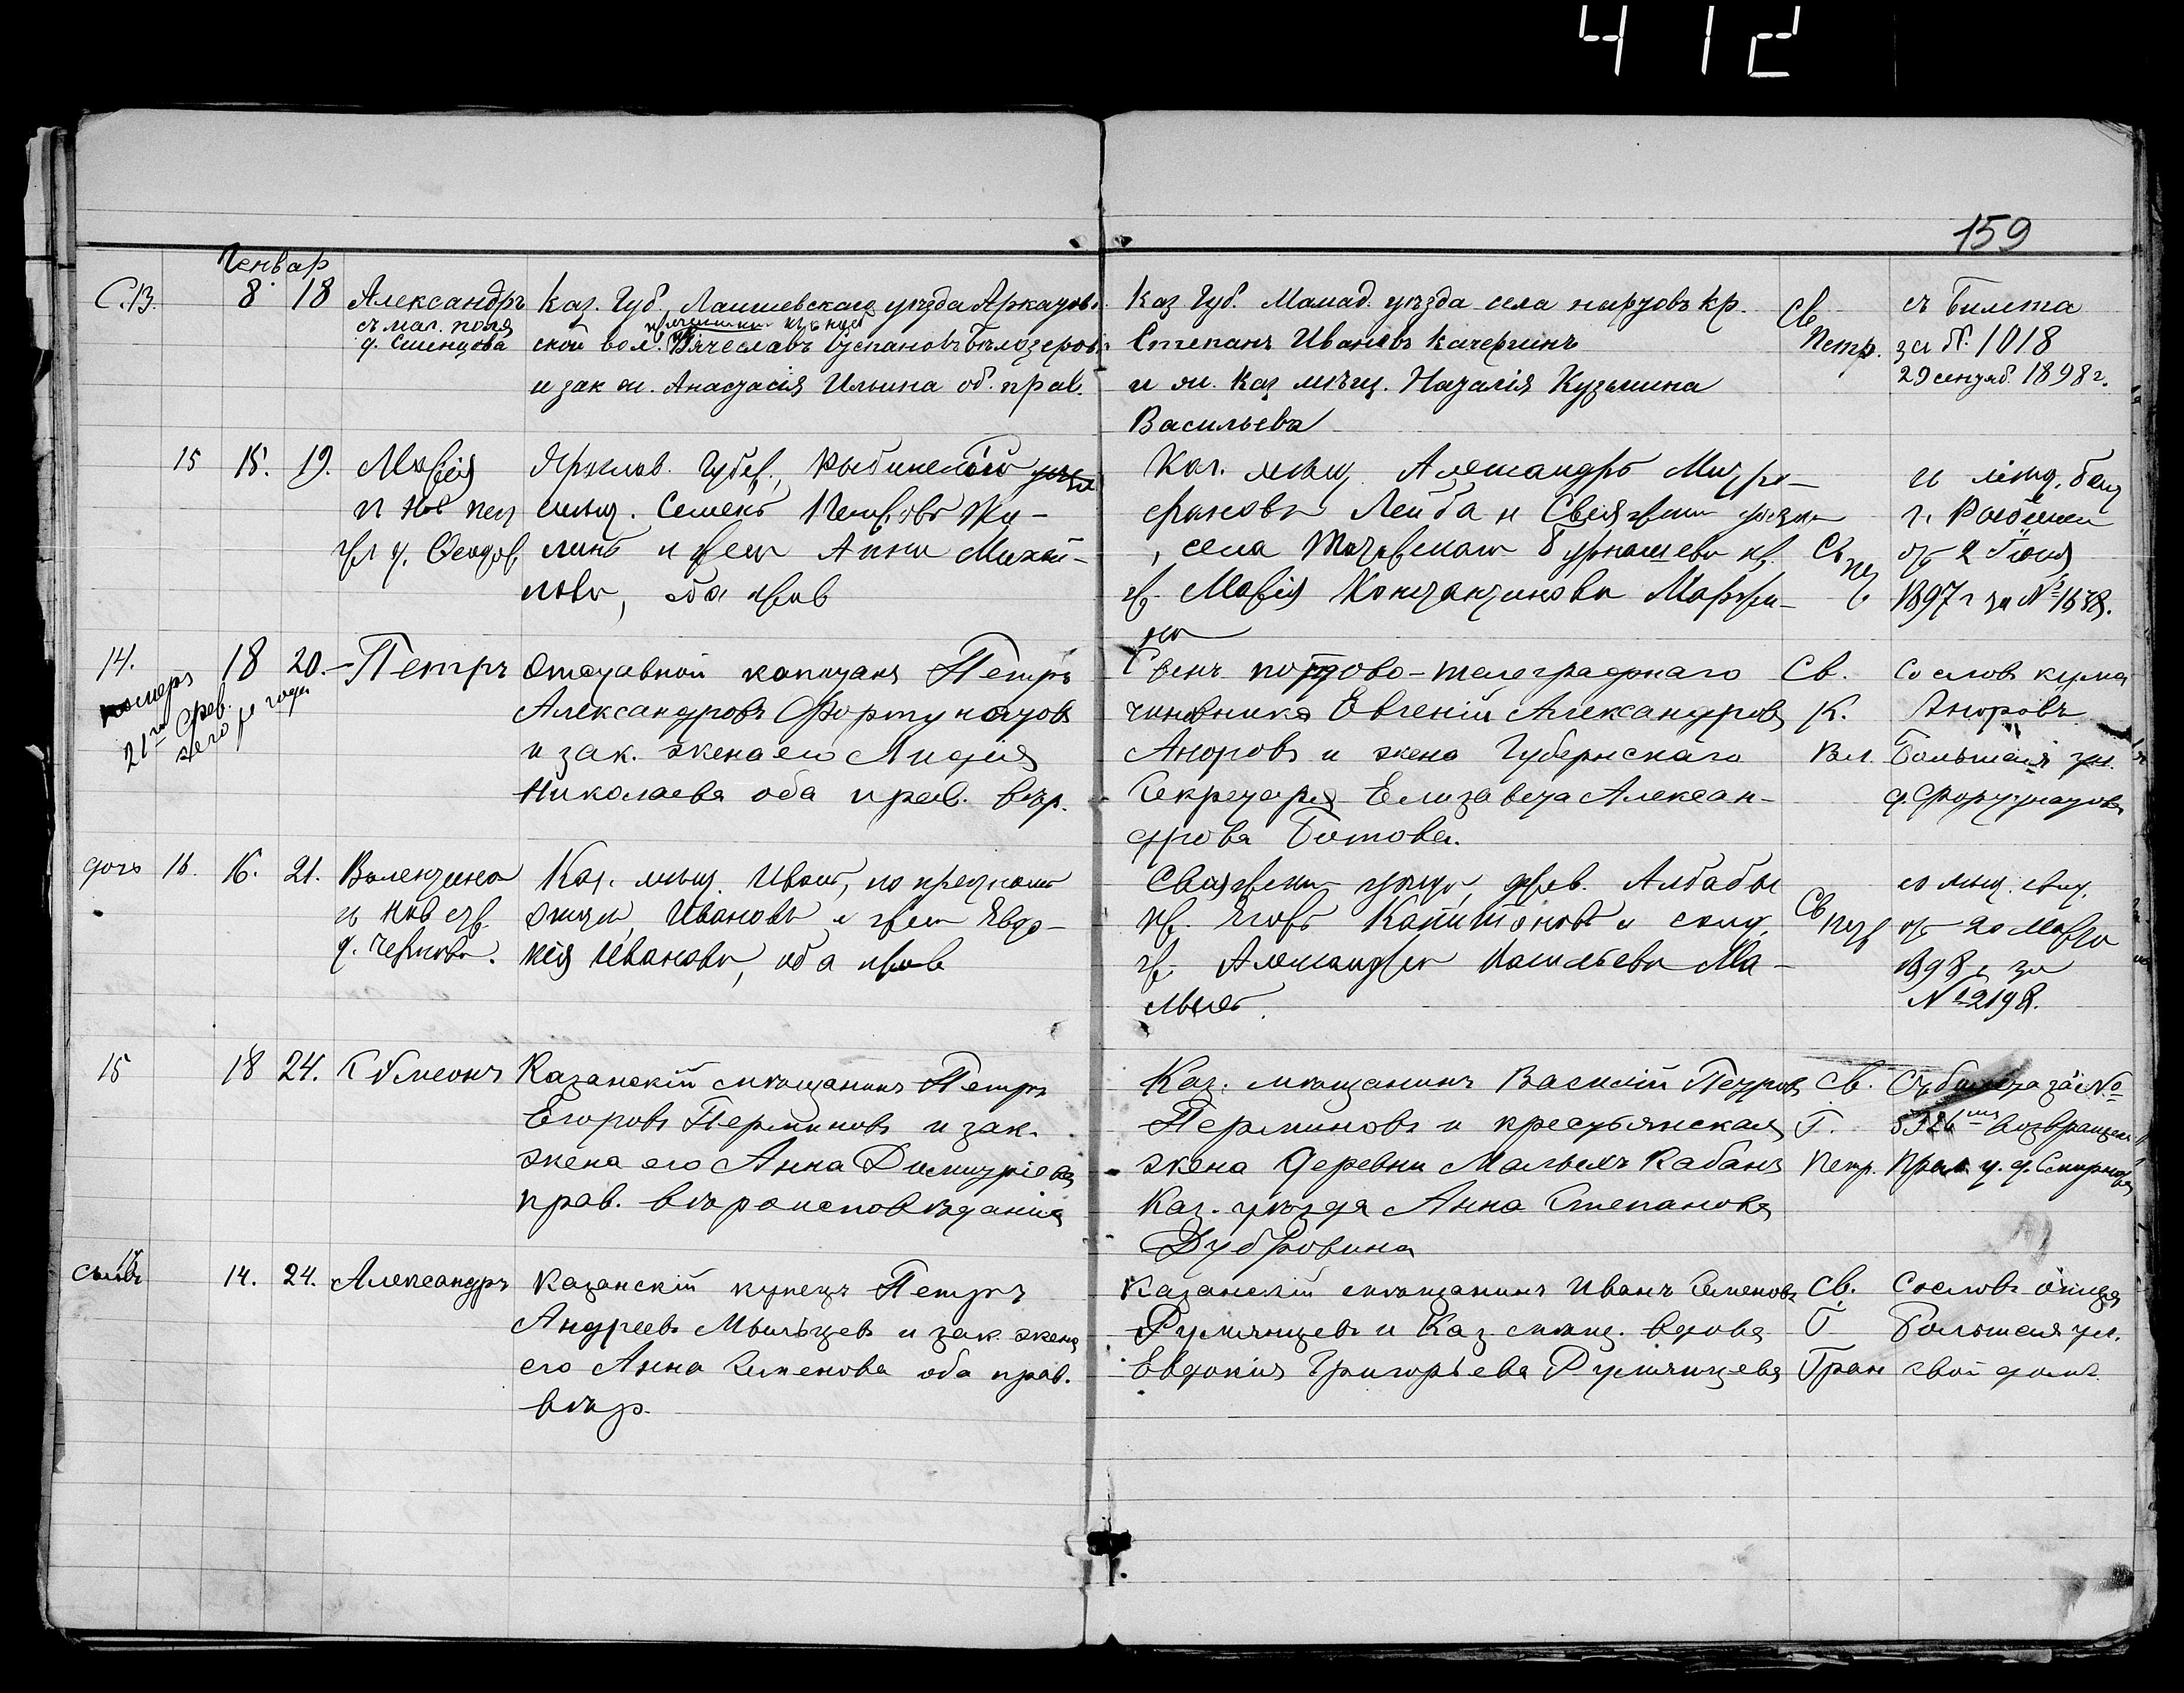 412
159
Генвар
С. 13.
8 18 Александръ
съ мал. поля
д. Сменцова
Каз. Губ. Лаишевскаго уѣзда
ской вол. Вячеславъ Степановъ Бѣлозеровъ
и зак ж. Анастасія Ильина об. прав.
Каз Губ. Мамад. уѣзда села кр.
Степанъ Ивановъ Качергинъ
и ж. Каз мѣщ. Наталія Кузьмина
Васильева
Св
Петр.
съ билета
за № 1018
29 сентяб. 1898 г.
15 15. 19. Марія
д. Ѳеодор.
Яросл. Губер., Рыбинскаго
мѣщ. Семенъ Петровъ Жи-
линъ и жена Анна Михай-
лова, оба прав
Каз. мѣщ. Александръ Митро-
фановъ Лейба и Свіяжскаго уѣзда
, села Бурнашева кр.
Марія Константинова Март-
Св
отъ 2 Іюня
1897 г за № 1638.
14.
18 20. Петръ
померъ
21го Фев.
сего года
Отставной капитанъ Петръ
Александровъ Фортунатовъ
и зак. жена его Лидія
Николаева оба прав. вѣр.
Сынъ почтово-телеграфнаго
чиновника Евгеній Александровъ
Аноровъ и жена Губернскаго
Секретаря Елизавета Алексан-
дрова Ботова.
Св.
К.
Вл.
Со словъ кума
Аноровъ
Большая ул.
д. Фортунатова
дочь 16. 16. 21. Валентина
д. Чернова.
Каз. мѣщ. Иванъ, по крестному
отцу Ивановъ и жена Евдо-
кія Иванова, оба прав
Свіяжскаго уѣзда, дерев. Албабы
кр. Егоръ Капитоновъ и солд.
ж. Александра Васильева Ма-
Св
Петр
отъ 20 Марта
1898 г за
№ 2198.
15 18 24. Сѵмеонъ
Казанскій мѣщанинъ Петръ
Егоровъ Перминовъ и зак.
жена его Анна Димитріева
прав. вѣроисповѣданія
Каз. мѣщанинъ Василій Петровъ
Перминовъ и крестьянская
жена деревни Малыхъ Кабанъ
Каз. уѣзда Анна Степанова
Дубровина
Св.
Г.
Петр.
Съ билета за №
возвращенъ
д. Смирнова
сынъ 14. 24. Александръ
Казанскій купецъ Петръ
Андреевъ Мыльцевъ и зак. жена
его Анна Семенова оба прав.
вѣр.
Казанскій мѣщанинъ Иванъ Семеновъ
Румянцевъ и Каз. мѣщ. вдова
Евдокія Григорьева Румянцева
Св.
Г
Гран
Со словъ отца
Большая ул.
свой домъ